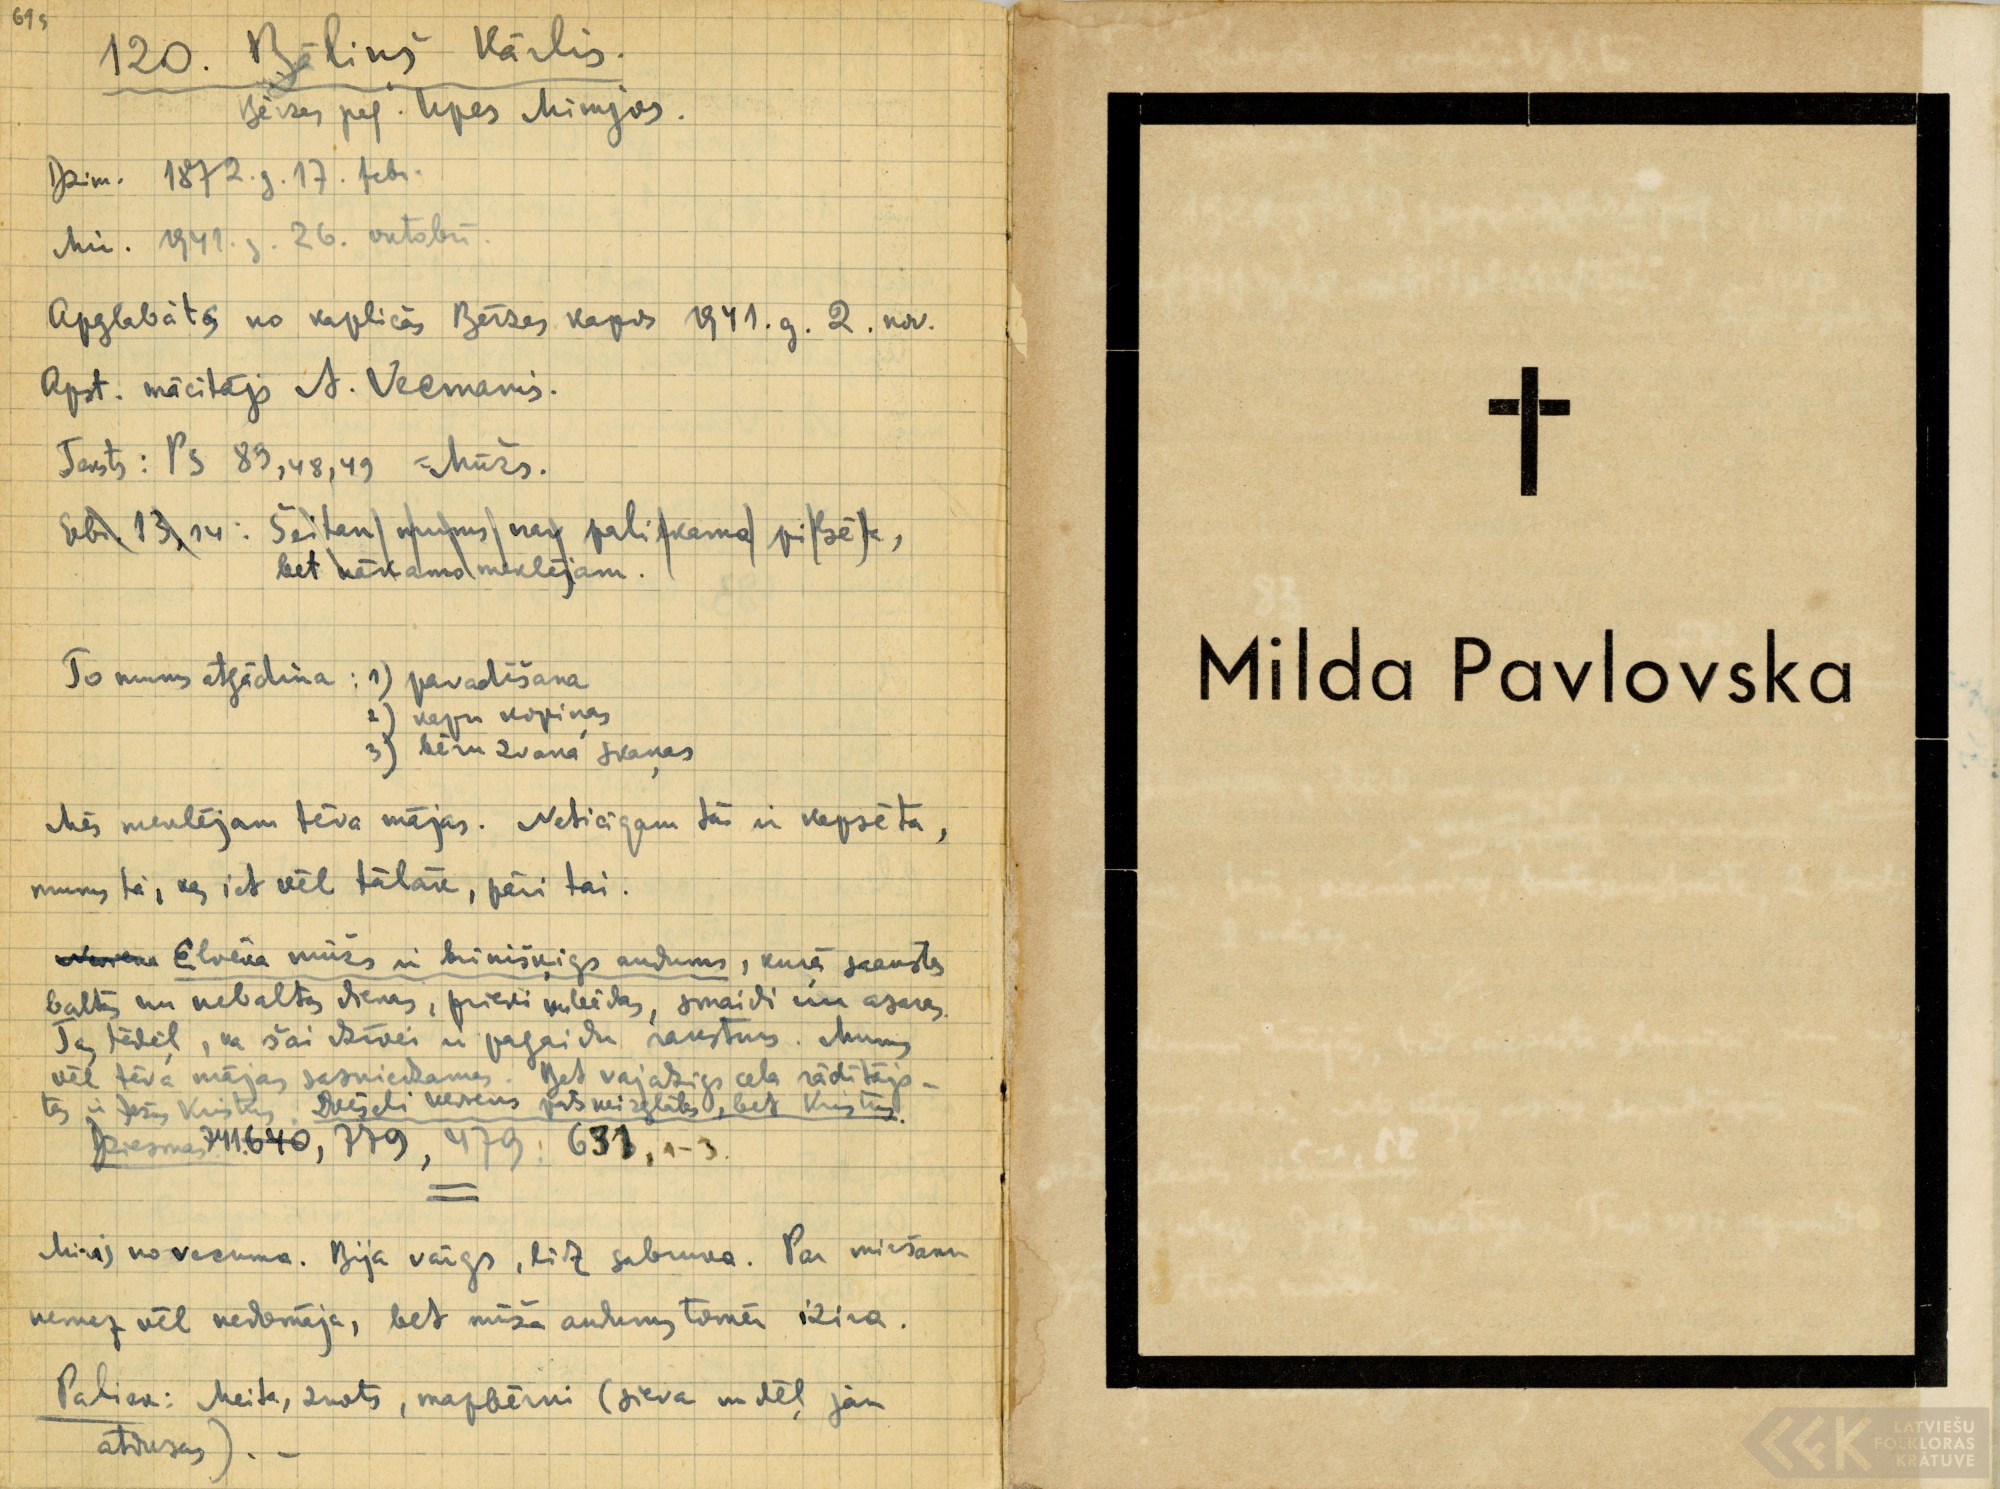 69s
120. Bāliņš Kārlis.
Bērzes pag. Upes Mimjos.
Dzim. 1872. g. 17. febr.
Mir. 1941. g. 26. oktobrī.
Apglabāts no kapličas Bērzes kapos 1941. g. 2. nov.
Apst. mācitājs A. Vecmanis.
Teksts: Ps 89,48,49 = Mūžs.
Ebr. 13,14: Šeitan mums nav paliekama pilsēta,
bet nākamo meklējam.
To mums atgādina: 1) pavadīšana
2) kapu kopiņas
3) bēru zvana skaņas
Mēs meklējam tēva mājas. Neticīgam tās ir kapsēta,
mums tā, kas iet vēl tālāk, pāri tai.
Cilvēka mūžs ir brīnišķigs audums, kurā saaustas
baltas un nebaltas dienas, prieki un bēdas, smaidi un asaras.
Tas tādēļ, ka šai dzīvei ir pagaidu raksturs. Mums
vēl tēva mājas sasniedzamas. Bet vajadzigs ceļa rādītājs –
tas ir Jēzus Kristus. Dvēseli neviens pats neizglābs, bet Kristus.
Dziesmas 741. 640, 779, 479; 631, 1-3.
Miris no vecuma. Bija vārgs, līdz sabruka. Par miršanu
nemaz vēl nedomāja, bet mūža audums tomēr izira.
Paliek: Meita, znots, mazbērni (sieva un dēls jau
atdusas). –
Milda Pavlovska
LATVIEŠU
FOLKLORAS
KRĀTUVE